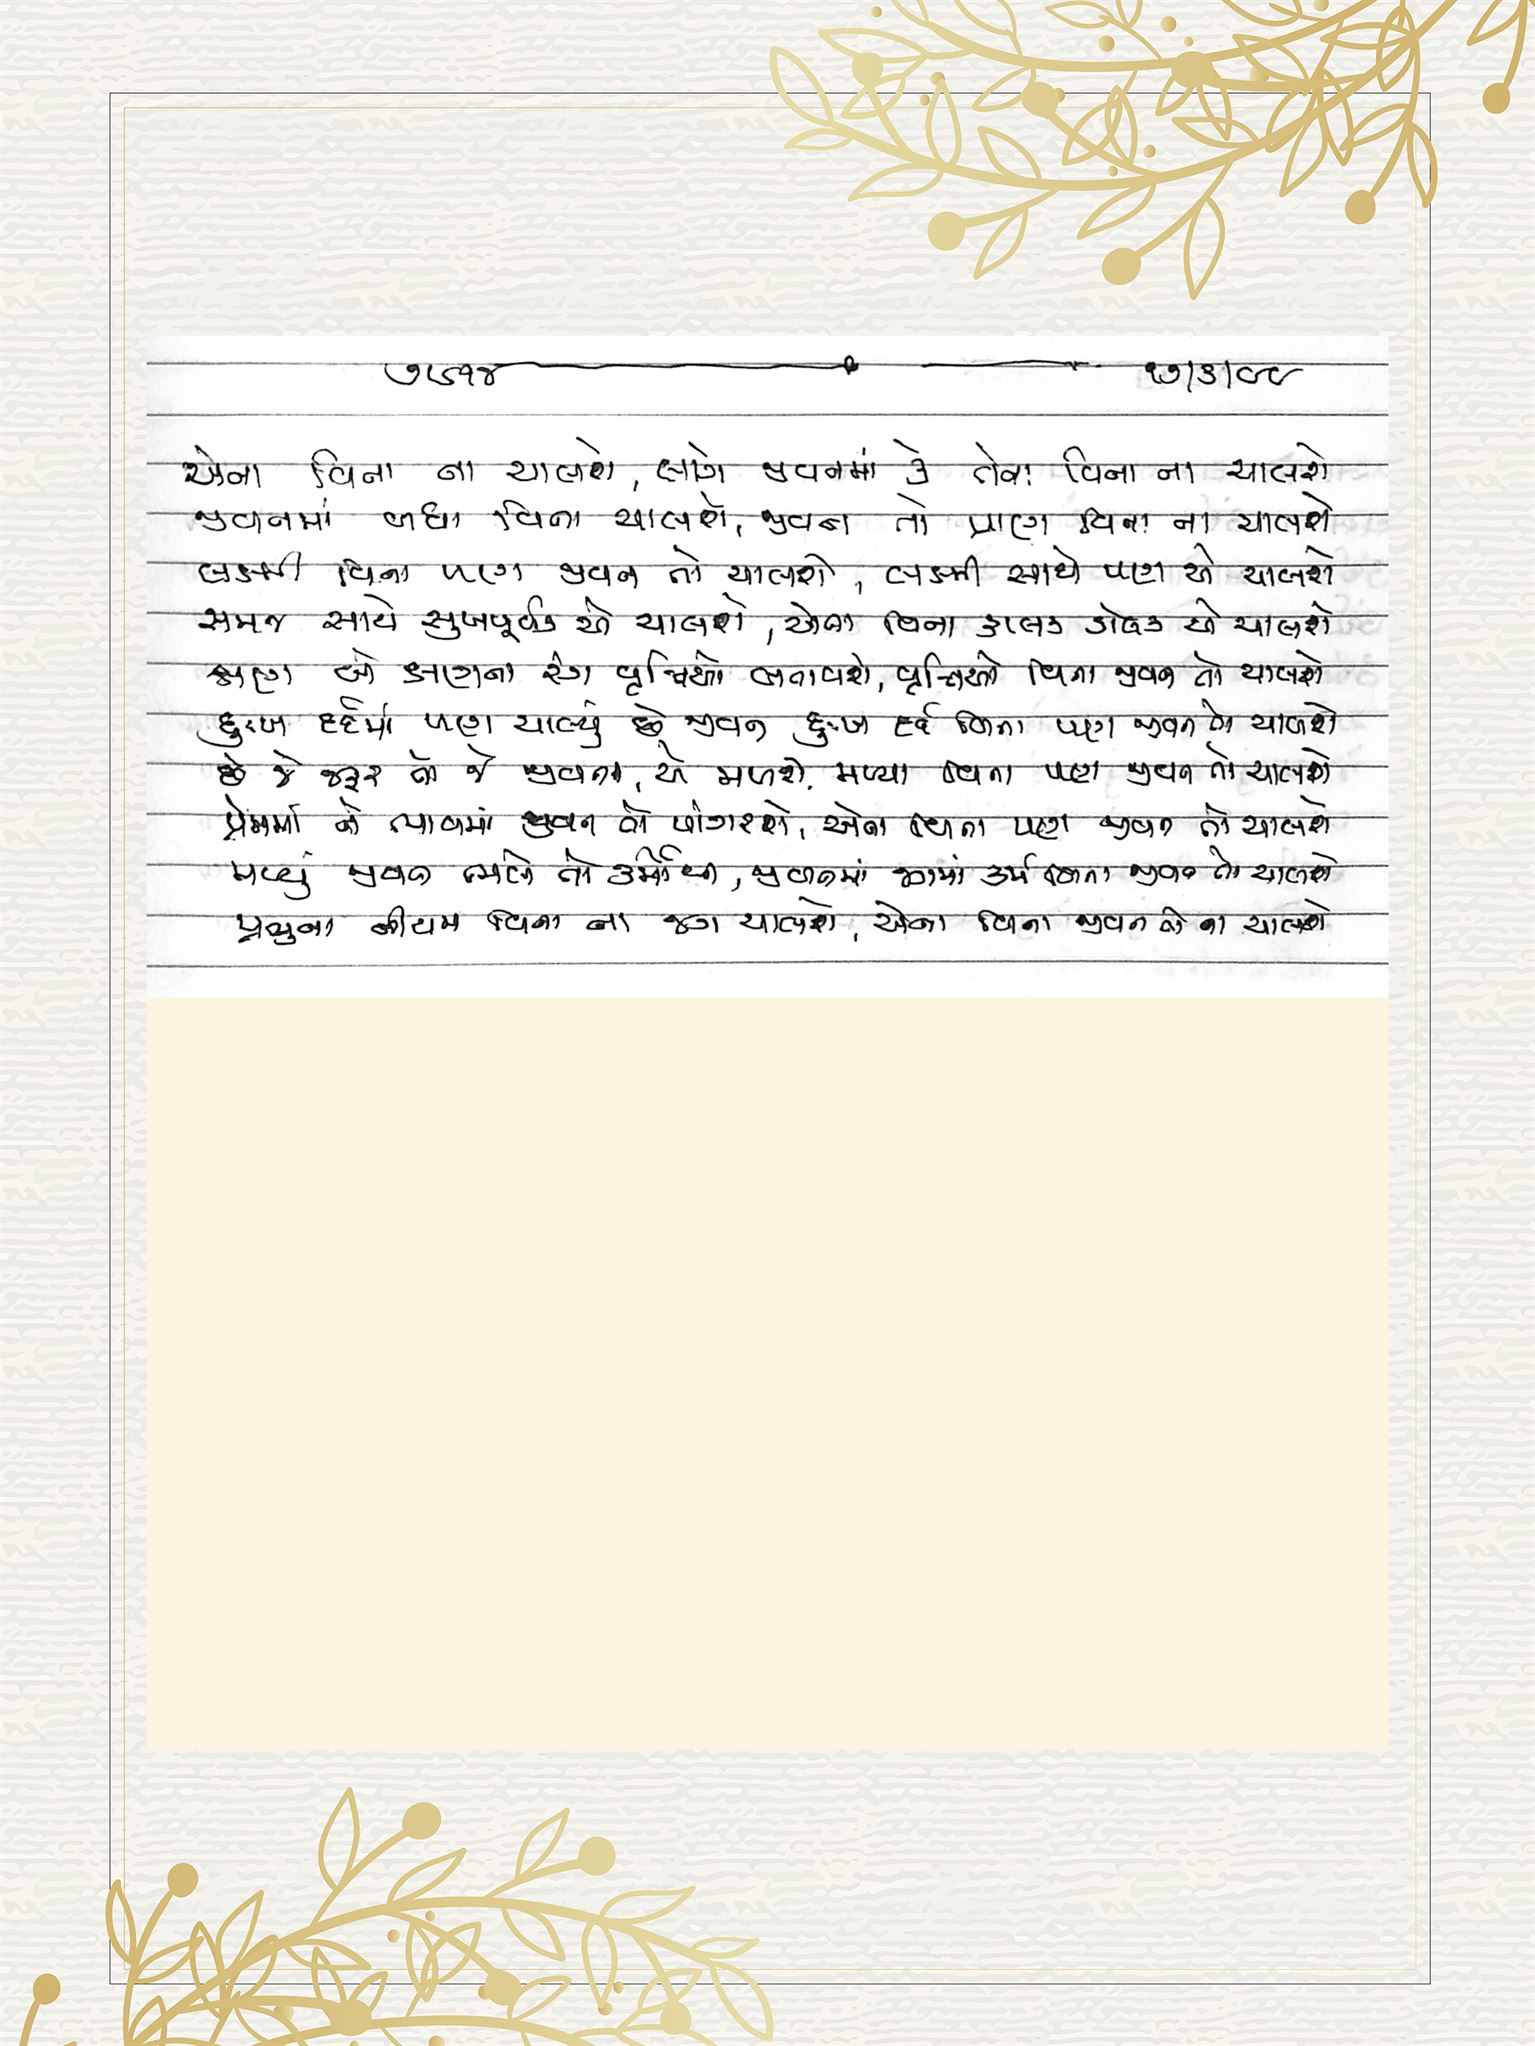 ૭૯૧૪ ૧૭/૩/૯૯
એના વિના ના ચાલશે, લાગે જીવનમાં રે તેના વિના ના ચાલશે
જીવનમાં બધા વિના ચાલશે, જીવન તો પ્રાણ વિના ના ચાલશે
લક્ષ્મી વિના પણ જીવન તો ચાલશે, લક્ષ્મી સાથે પણ એ ચાલશે
સમજ સાથે સુખપૂર્વક એ ચાલશે, એના વિના એ ચાલશે
ક્ષણ બે ક્ષણના રંગ વૃત્તિઓ જનાવશે, વૃત્તિઓ વિના જીવન તો ચાલશે
દુઃખ દર્દમાં પણ ચાલ્યું છે જીવન દુઃખ દર્દ વિના પણ જીવન તો ચાલશે
છે જે જરૂર તો જે જીવનના, એ મળશે, મળ્યા વિના પણ જીવન તો ચાલશે
પ્રેમમાં ને ત્યાગમાં જીવન તો પાંગરશે, એના વિના પણ જીવન તો ચાલશે
મળ્યું જીવન તો કર્મોથી, જીવનમાં કર્મ વિના જીવન તો ચાલશે
પ્રભુના નીયમ વિના ના જગ ચાલશે, એના વિના જીવન તો ના ચાલશે